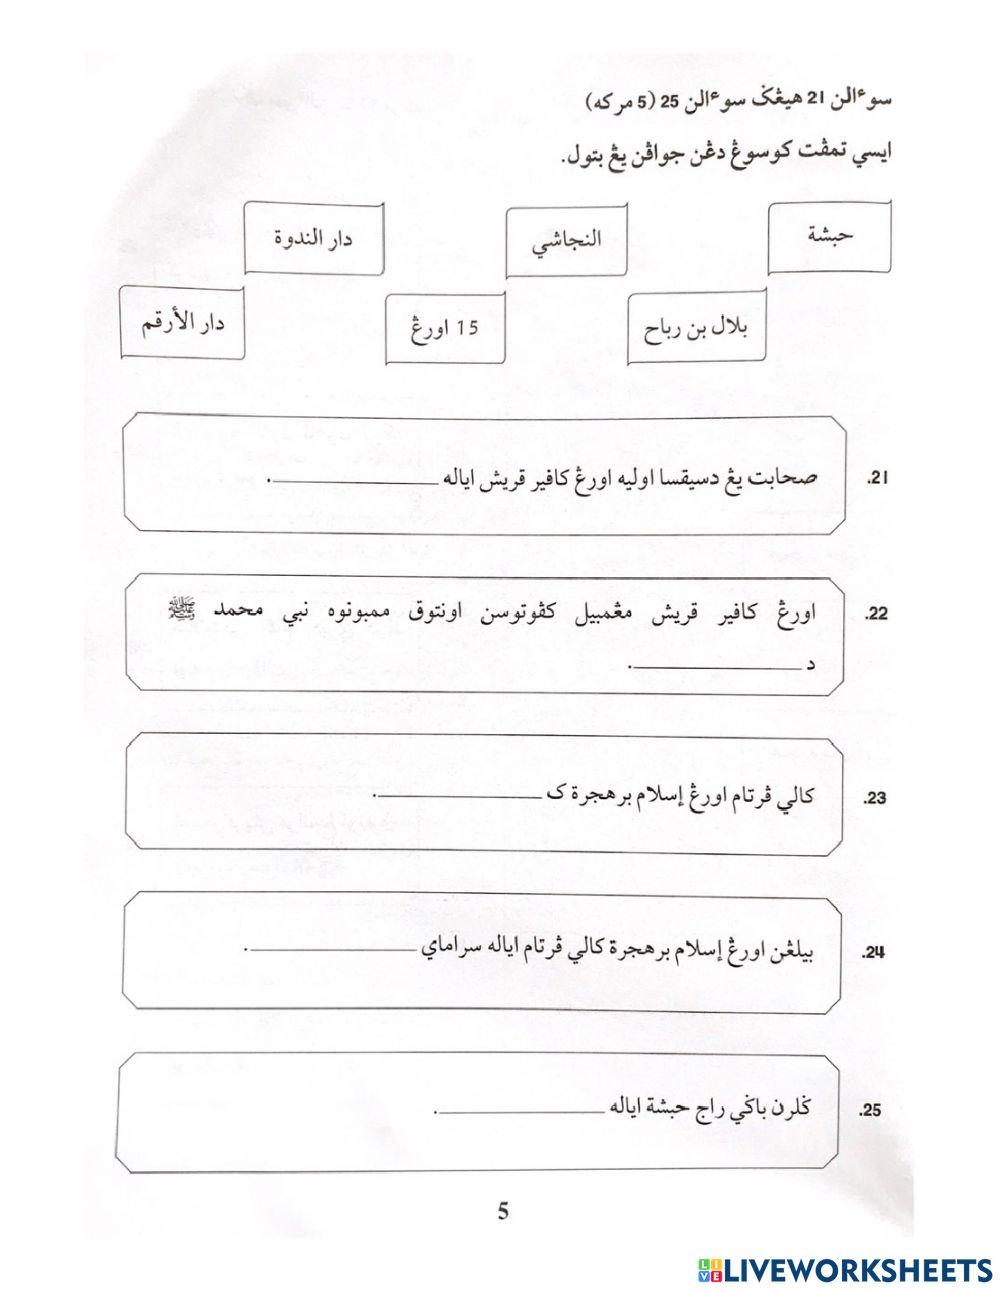 سوءالن 21 هيڠݢ سوءالن 25 (5 مركه)
ايسي تمڤت كوسوڠ دڠن جواڤن يڠ بتول.
حبشة
النجاشي
دار الندوة
بلال بن رباح
15 اورڠ
دار الأرقم
21. صحابت يڠ دسيقسا اوليه اورڠ كافير قريش اياله ________.
22. اورڠ كافير قريش مڠمبيل كڤوتوسن اونتوق ممبونوه نبي محمد ﷺ
د ________.
23. كالي ڤرتام اورڠ إسلام برهجرة ک ________.
24. بيلڠن اورڠ إسلام برهجرة كالي ڤرتام اياله سراماي ________.
25. ݢلرن باݢي راج حبشة اياله ________.
5
LIVEWORKSHEETS